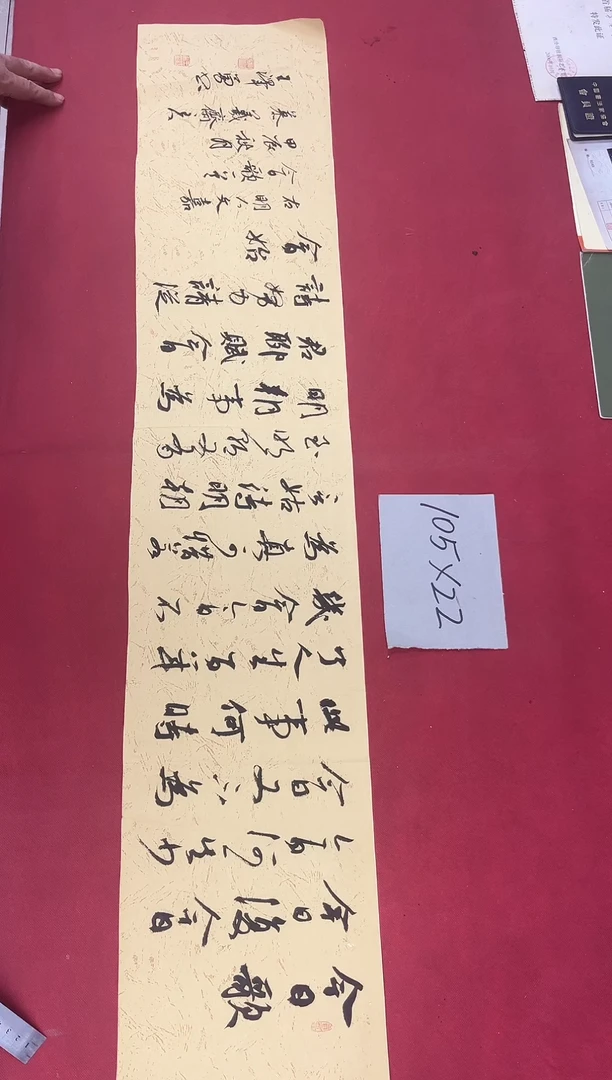 今日歌
今日復今日
今日何其少
今日又不為
此事何時
了人生百年
幾今日今日不
為真可惜若
言姑待明朝
至明朝又有
明朝事為
君聊賦今日
詩努力請從
今日始
右明人文嘉
今日歌一首
甲辰秋月
慕羲齋主
王澤勇書
105X22
會員證
特发此证